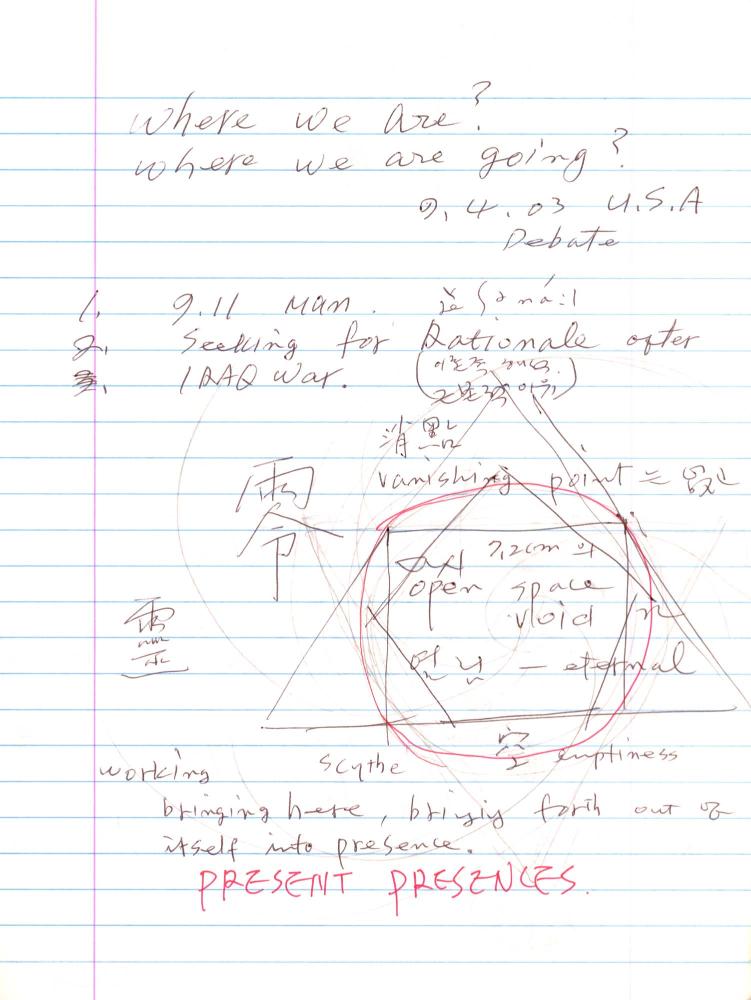 where we are?
where we are going?
9.4.03 U.S.A
Debate
1. 9.11 man.
2. Seeking for Rationale after
IRAQ War.
消點
vanishing point =
零
7.2cm 의
open space
void
靈
— eternal
空 emptiness
working scythe
bringing here, bringing forth out of
itself into presence.
PRESENT PRESENCES.